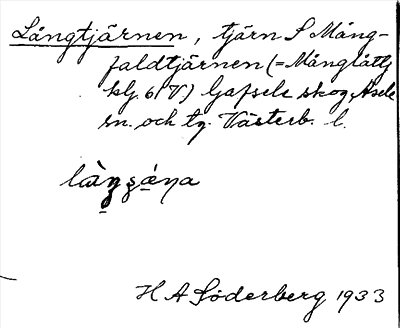 Långtjärnen, tjärn S Mång-
faldtjärnen (=Månglått
6/V) Gafsele skog, Åsele
sn. och tg. Västerb. l.
H A Söderberg 1933